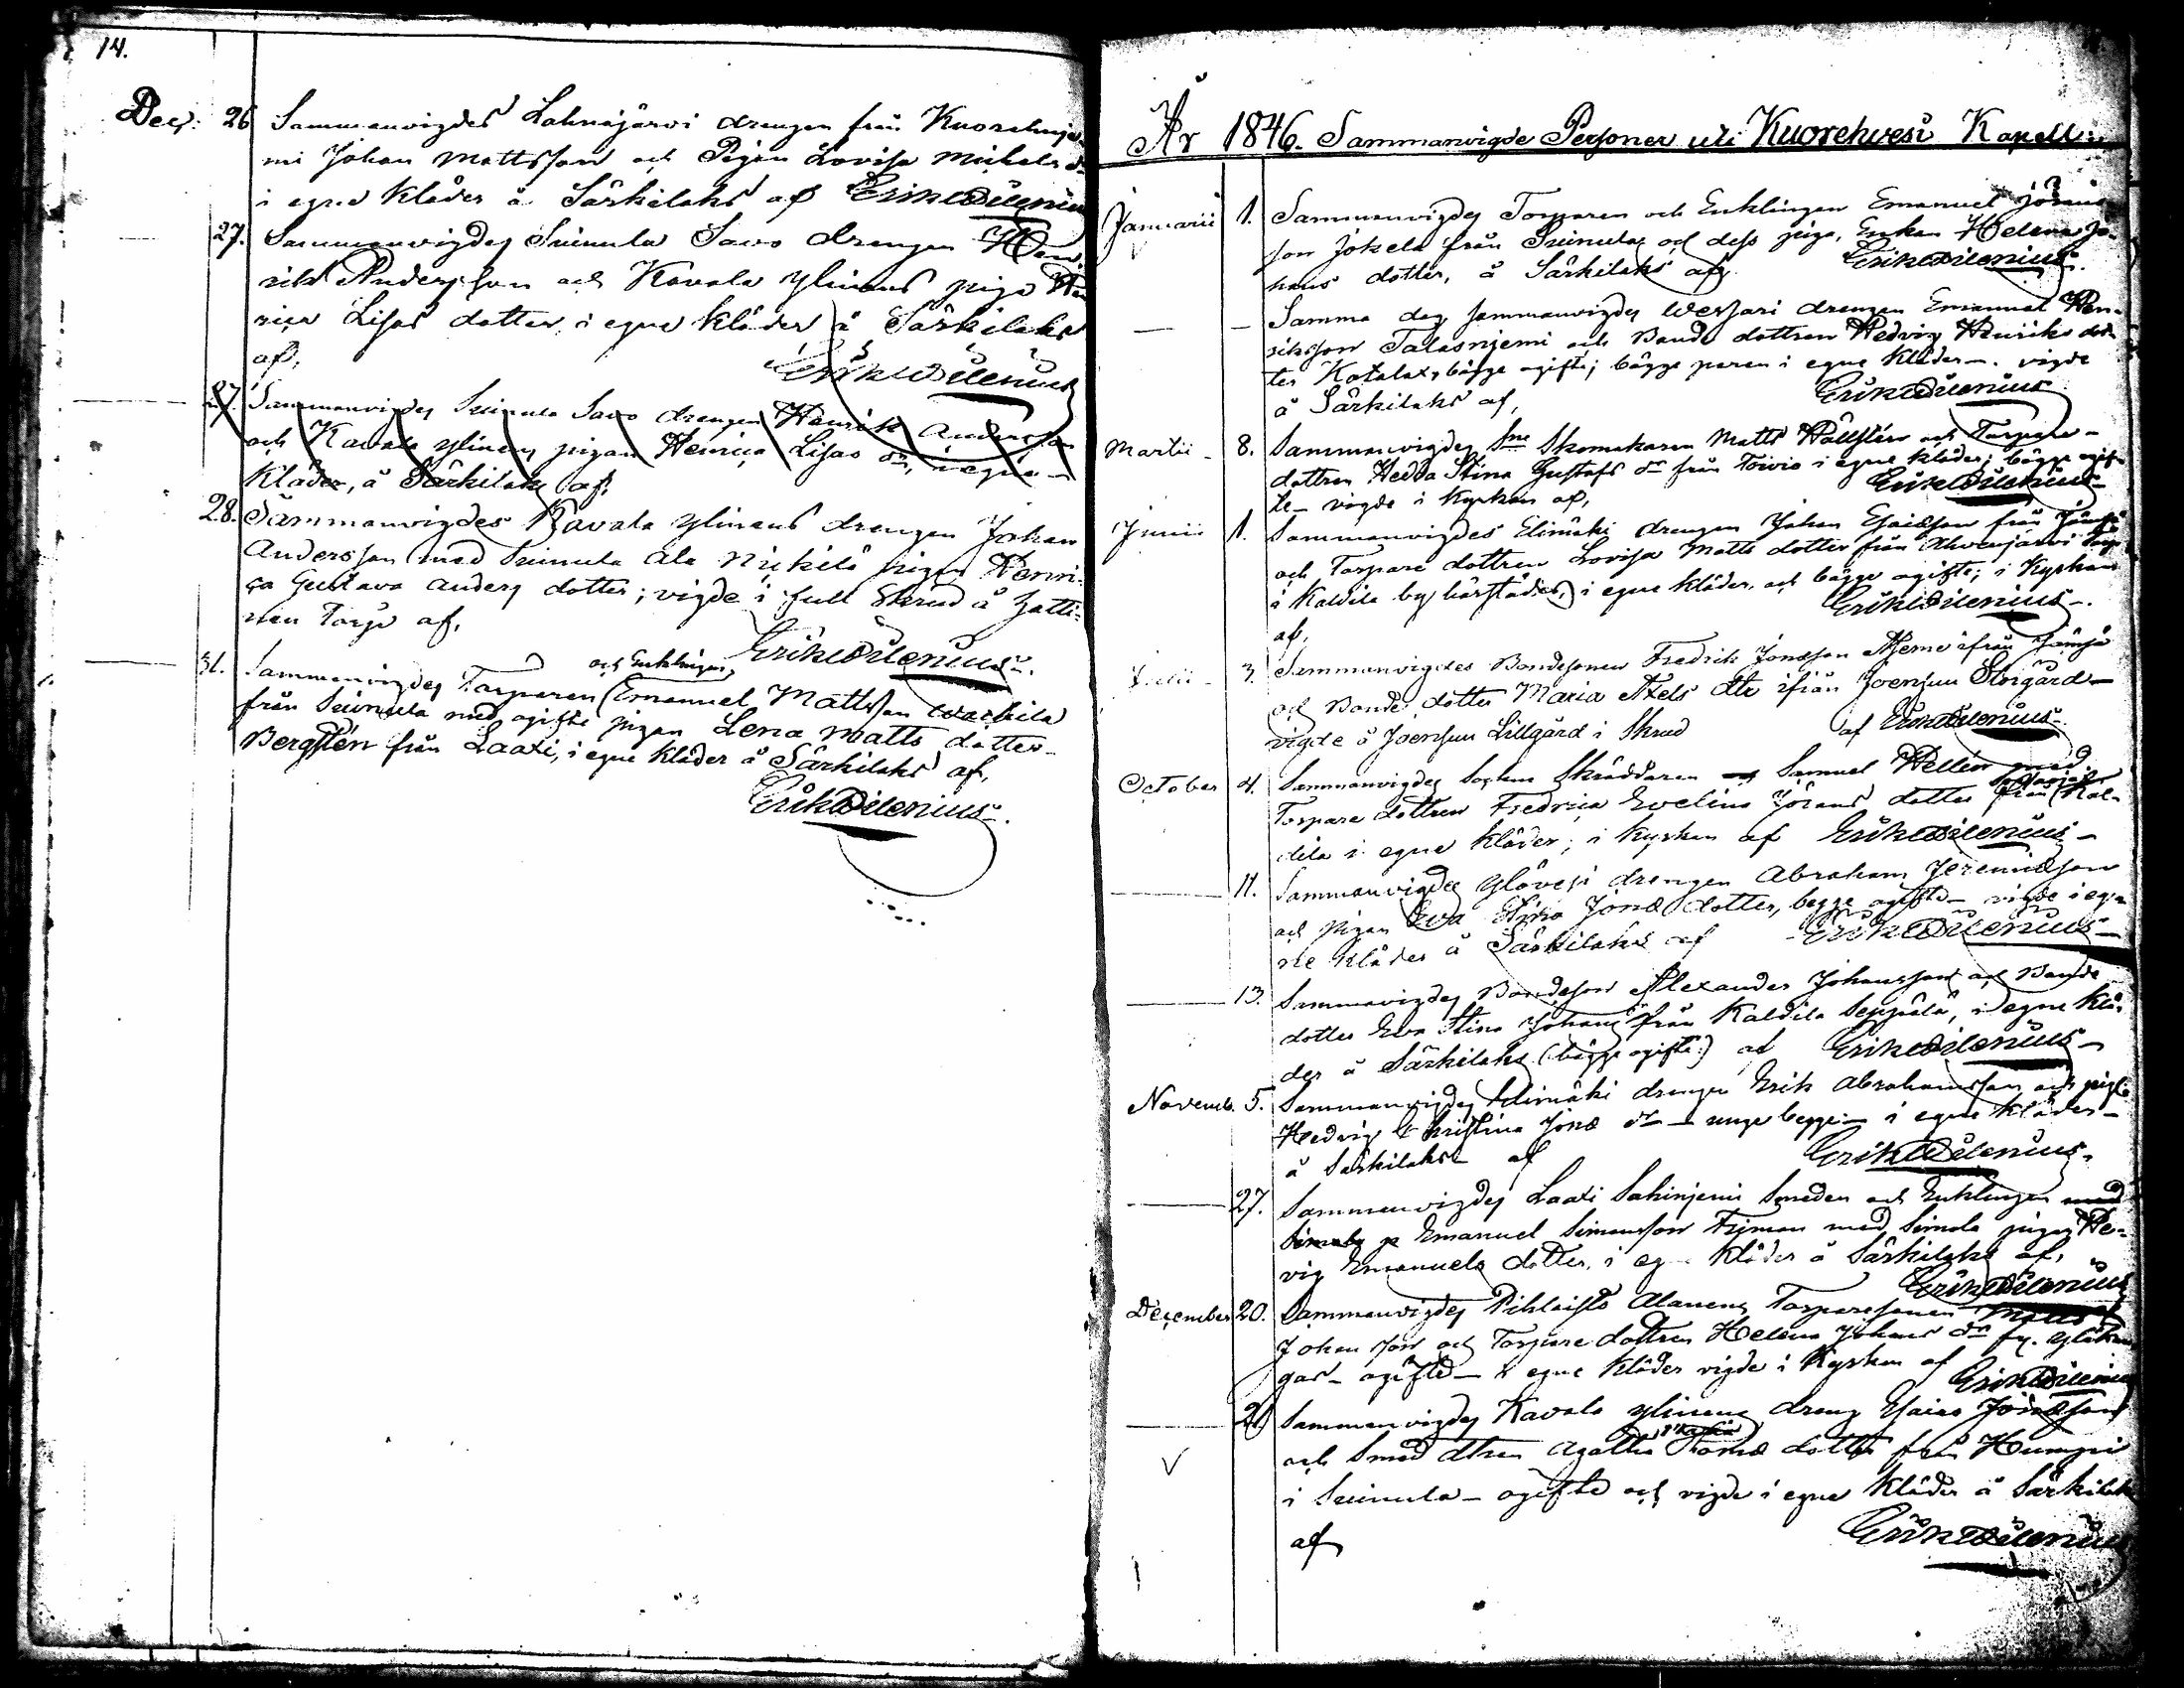 14.
Dec: 26 Sammanvigdes Lahnajärvi drengen från
mi Johan Mattsson och Pigan Lovisa Michels
i egne kläder å Särkilaks af Erik Dilenius
27. Sammanvigdes Suinula Savo drengen Hen-
rik Andersson och Kavala Ylinens piga Hen
rica Lisas dotter i egne kläder å Särkilaks
af, Erik Dilenius
27. Sammanvigdes Suinula Savo drengen Henrik Andersson
och Kavala Ylinens pigan Henrica Lisas dr, i egne
Kläder, å Särkilaks af,
28. Sammanvigdes Kavala Ylinens drengen Johan
Andersson med Suinula Ala pigan Henri-
ca Gustava Anders dotter; vigde i full Skrud å
nen Torp af, Erik Dilenius.
31. Sammanvigdes Torparen och Enklingen Emanuel Mattsson
från Suinula med ogifte pigan Lena Matts dotter
Bergsten från Laaxi, i egne kläder å Särkilaks af,
Erik Dilenius.
År 1846. Sammanvigde Personer uti Kuorehvesi Kapell:
Januarii 1. Sammanvigdes Torparen och Enklingen Emanuel Jörans
son Jokela från Suinula och dess piga, Enkan Helena Jo-
hans dotter, å Särkilaks af Erik Dilenius.
— — Samma dag sammanvigdes drengen Emanuel Hen-
riksson Talasniemi och Bonde dottren Hedvig Henriks dot-
ter bägge ogifte; bägge paren i egne Kläder —. vigde
å Särkilaks af, Erik Dilenius
Martii 8. Sammanvigdes Skomakaren Matts Hällsten och Torpare-
dottren Hedda Stina Gustafs dr från Toivio i egne kläder; bägge ogif-
te – vigde i Kyrkan af, Erik Dilenius
Junii 1. Sammanvigdes Elimäki drengen Johan Esaiasson från Jämsä
och Torpare dottren Lovisa Matts dotter från Ahvenjärvi Torp
i Kaldila by härstädes, i egne kläder, och bägge ogifte; i Kyrkan
af, Erik Dilenius —.
3. Sammanvigdes Bondesonen Fredrik Jonæson ifrån Jämsä
och Bonde dotter Maria Axels dtr ifrån Joensuu Storgård
vigde å Joensuu Lillgård i Skrud af Erik Dilenius.
October 4. Sammanvigdes Sockne Skräddaren Samuel Hellen med
Torpare dottren Fredrica Evelina Jörans dotter från Kal-
dila i egne kläder; i Kyrkan af Erik Dilenius –
11. Sammanvigdes Ylävesi drengen Abraham Jeremiæson
och pigan Eva Stina Jonæ dotter, begge ogifte – vigde i eg-
ne kläder å Särkilaks af Erik Dilenius
13. Sammanvigdes Bondeson Alexander Johansson och Bonde
dotter Eva Stina Johans från Kaldila Seppälä, i egne Klä-
der å Särkilaks (bägge ogifte:) af Erik Dilenius
Novemb. 5. Sammanvigdes Elimäki drengen Erik Abrahamsson och
Hedvig Christina Jonæ dr – unge begge – i egne kläder –
å Särkilaks af Erik Dilenius.
27. Sammanvigdes Laaxi Sahiniemi Smeden och Enklingen med
Emanuel Simonsson Frjman med Simola pigan He-
vig Emanuels dotter, i egne kläder å Särkilaks af,
Erik Dilenius
December 20. Sammanvigdes Pihlaisto Alanens Torparesonen Matts
Johansson och Torpare dottren Helena Johans dr
gar – ogifte – i egne Kläder vigde i Kyrkan af Erik Dilenius
Sammanvigdes Kavala Ylinens dreng Esaias Jonæson
och Smed dtren Agatha dotter från Humppi
i Suinula – ogifte och vigde i egne Kläder å Särkilaks
af Erik Dilenius